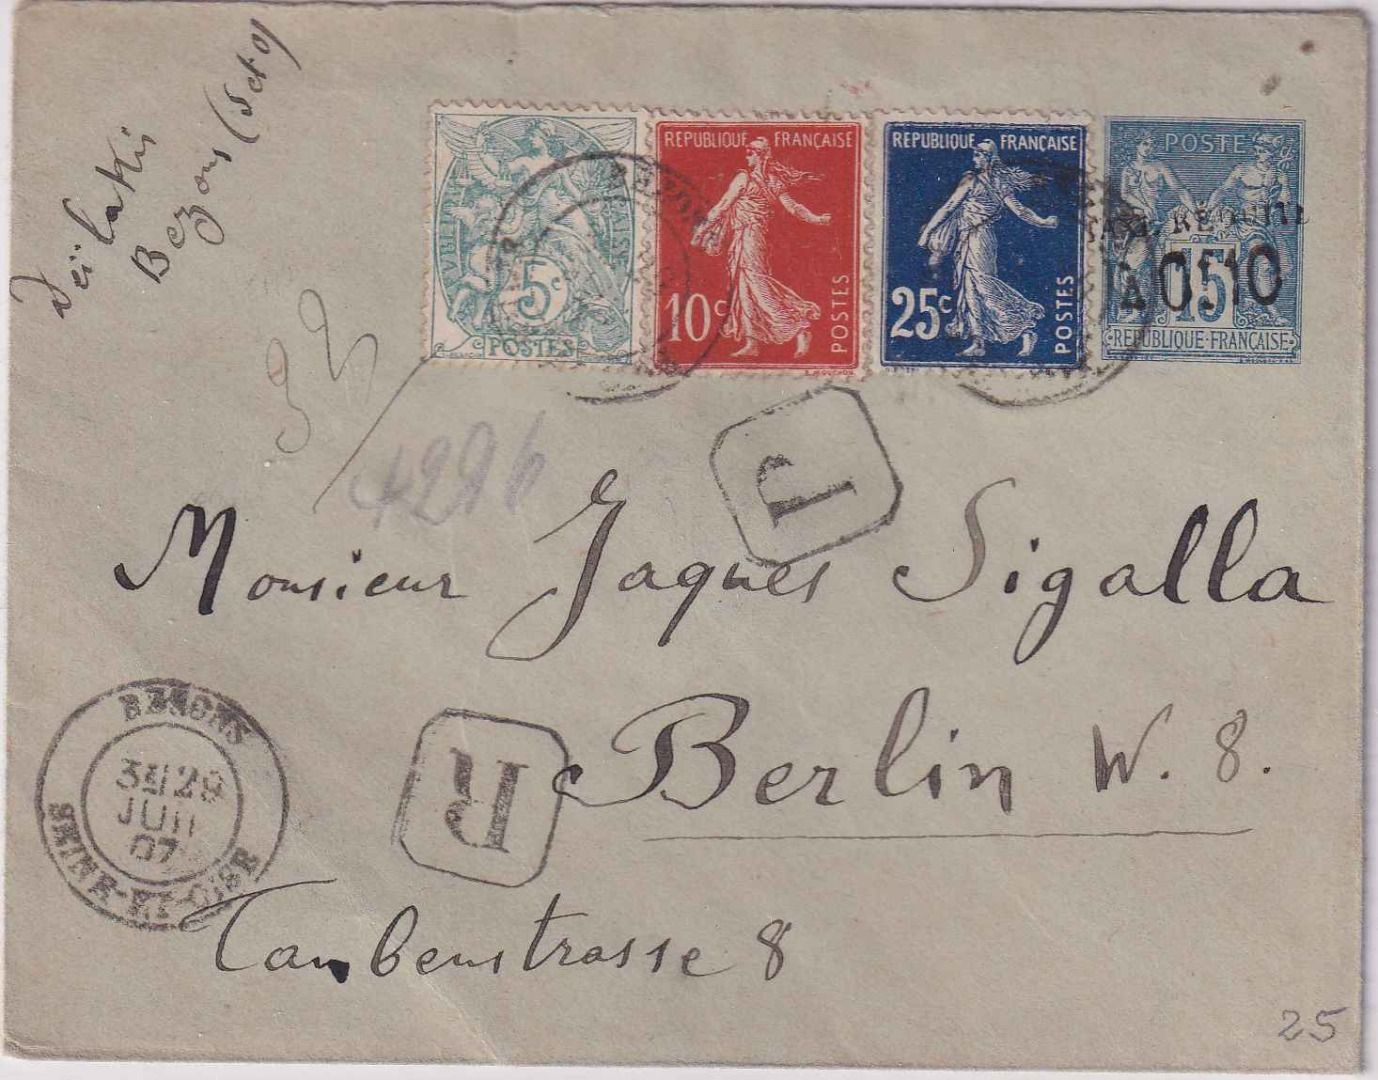 Bezons (S et O)
5c
POSTES
REPUBLIQUE FRANÇAISE
10c
POSTES
REPUBLIQUE FRANÇAISE
25c
POSTES
POSTE
TAXE RÉDUITE
À 0f.10
15
REPUBLIQUE FRANÇAISE
R
Monsieur Jaques Sigalla
R
Berlin W. 8.
BEZONS
3E 29
JUIN
07
SEINE-ET-OISE
Taubenstrasse 8
25